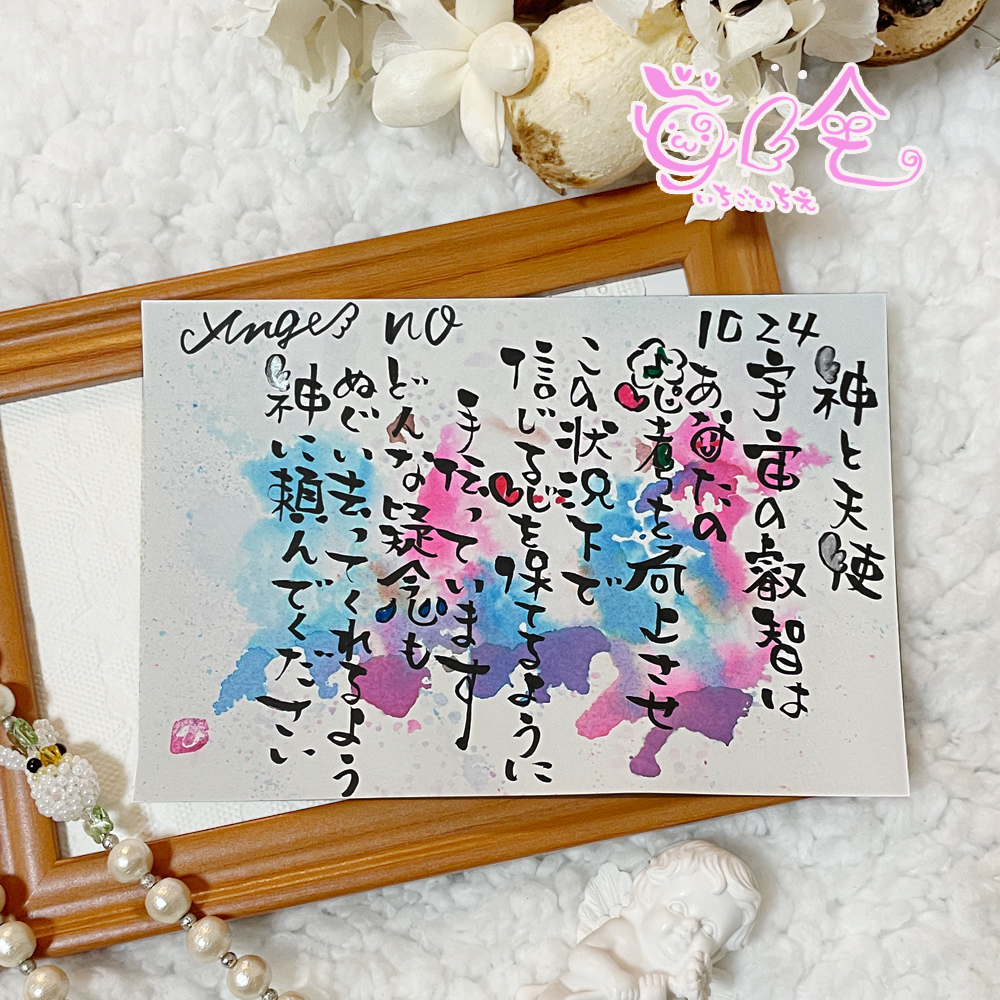 Angel NO 1024
神と天使
宇宙の叡智は
あなたの
思考を向上させ
この状況下で
信じる心を保てるように
手伝っています
どんな疑念も
ぬぐい去ってくれるよう
神に頼んでください
いちごいちえ